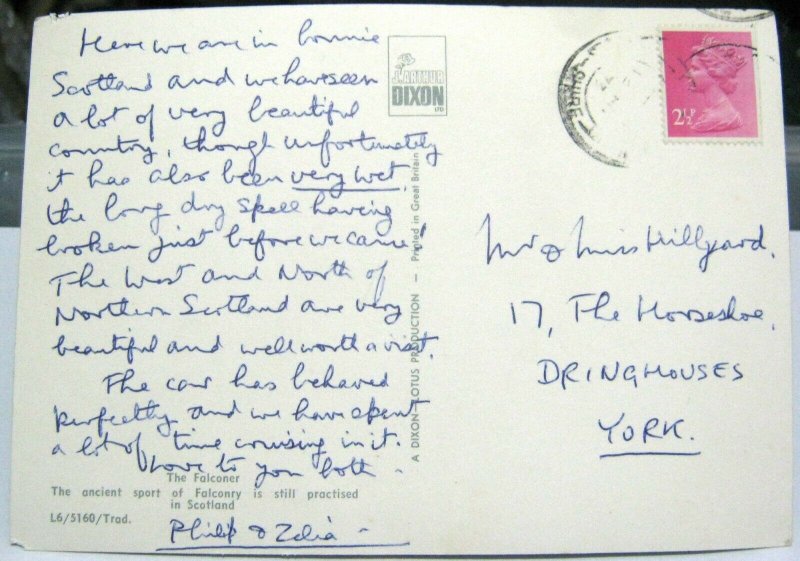 Here we are in bonnie
Scotland and we have seen
a lot of very beautiful
country, though unfortunately
it has also been very wet,
the long dry spell having
broken just before we came!
The West and North of
Northern Scotland are very
beautiful and well worth a visit.
The car has behaved
perfectly and we have spent
a lot of time cruising in it.
Love to you both -
Philip & Zelia -
The Falconer
The ancient sport of Falconry is still practised
in Scotland
L6/5160/Trad.
J. ARTHUR
DIXON
LTD
A DIXON-LOTUS PRODUCTION - Printed in Great Britain
SHIRE
2½P
Mr & Miss Hillyard.
17, The Horseshoe,
DRINGHOUSES
YORK.